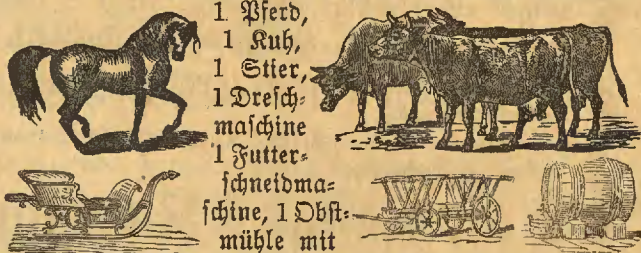 1 Pferd,
1 Kuh,
1 Stier,
1 Dresch-
maschine
1 Futter-
schneidma-
schine, 1 Obst-
mühle mit